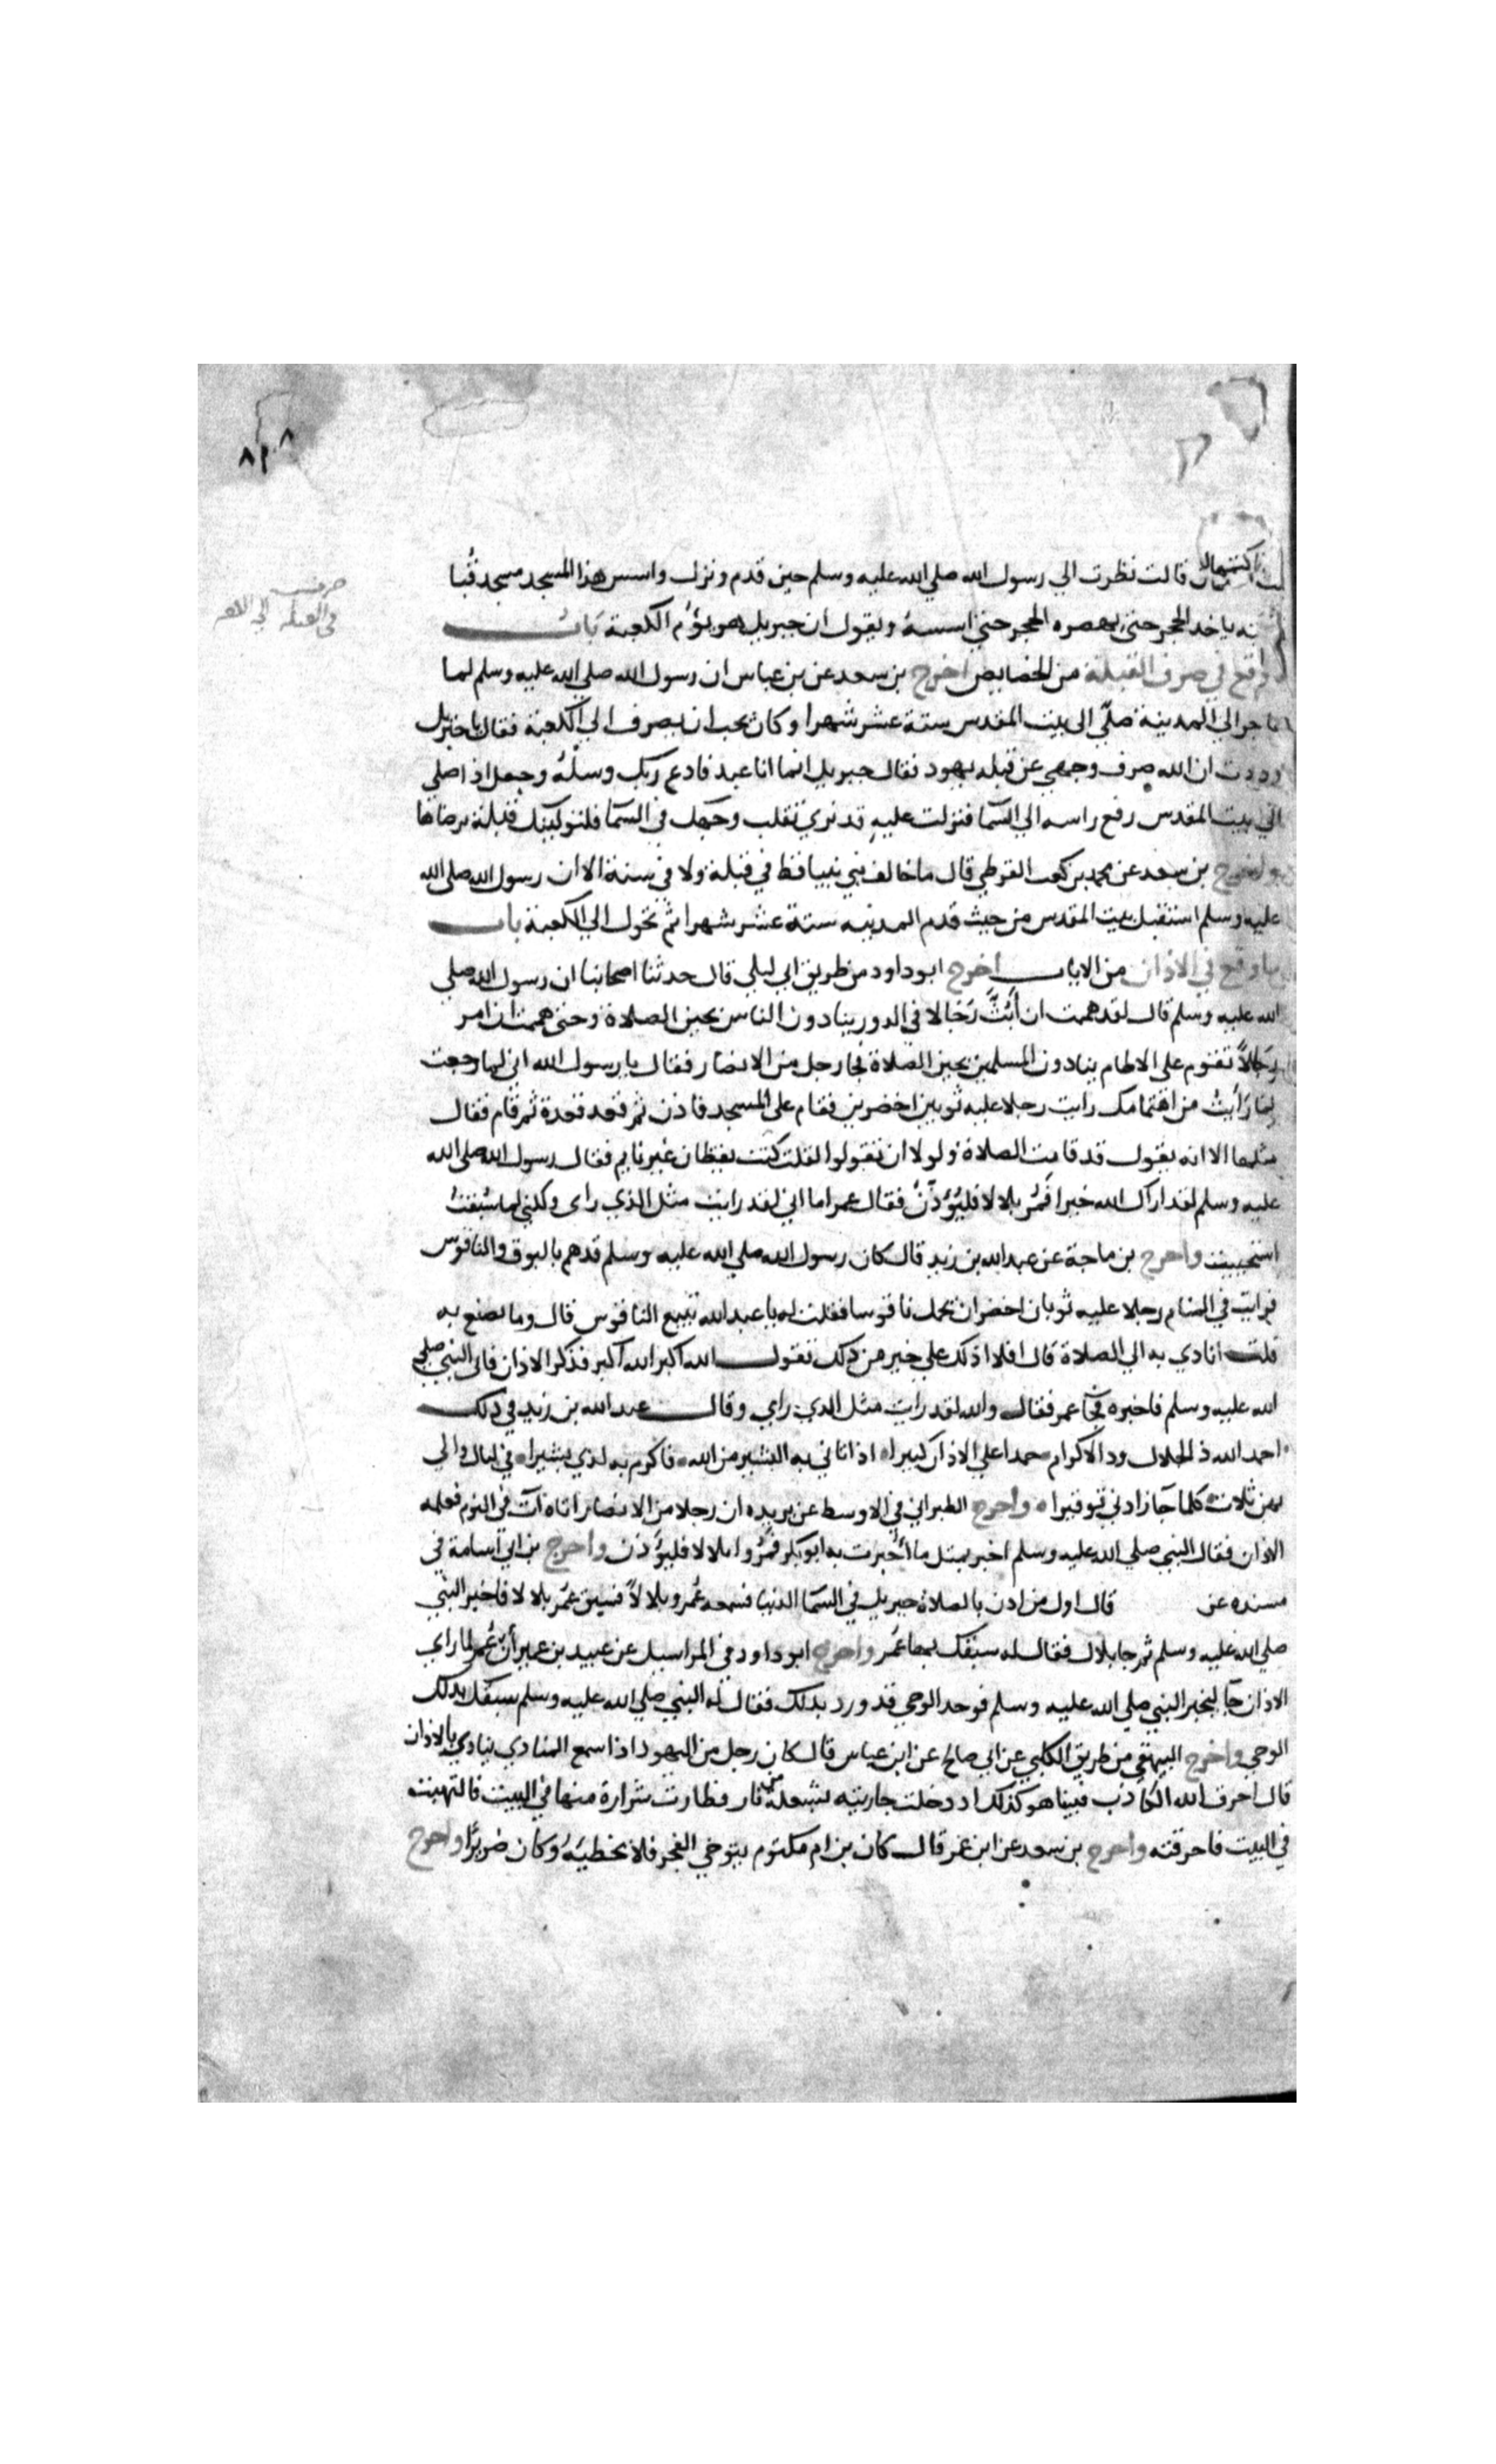 قالت نظرت الي رسول الله صلي الله عليه وسلم حين قدم ونزل واسس هذا المسجد مسجد قُبا
ياخد الحجر حتي يهصره الحجر حتي اسسهُ ويقول ان جبريل هو يؤم الكعبة باب
وقع في صرف القبلة من الخصايص اخرج بن سعد عن بن عباس ان رسول الله صلي الله عليه وسلم لما
هاجر الي المدينة صلّي الى بيت المقدس ستة عشر شهرا وكان يحب ان يصرف الي الكعبة فقال يا جبريل
وددت ان الله صرف وجهي عن قبله يهود فقال جبريل انما انا عبد فادع ربك وسلهُ وجعل اذا صلي
الي بيت المقدس رفع راسه الي السمآ فنزلت عليه قد نري تقلب وجهك في السمآ فلنولينك قبلة ترضاها
واخرج بن سعد عن محمد بن كعب القرظي قال ما خالف نبي نبيا قط في قبلة ولا في سنة الا ان رسول الله صلى الله
عليه وسلم استقبل بيت المقدس من حيث قدم المدينه ستة عشر شهرا ثم تحول الي الكعبة باب
ما وقع في الاذان من الايات اخرج ابو داود من طريق ابي ليلي قال حدثنا اصحابنا ان رسول الله صلي
الله عليه وسلم قال لقد هممت ان أبُثَّ رجالا في الدور ينادون الناس بحين الصلاة وحتي هممت ان امر
رجالاً تقوم على الاطام ينادون المسلمين بحين الصلاة فجا رجل من الانصار فقال يا رسول الله اني لما رجعت
لما رأيت من اهتمامك رايت رجلا عليه ثوبين اخضرين فقام على المسجد فاذن ثم قعد قعدة ثم قام فقال
مثلها الا انه يقول قد قامت الصلاة ولولا ان تقولوا لقلت كنت يقظان غير نايم فقال رسول الله صلى الله
عليه وسلم لقد اراك الله خيرا فمُر بلالا فليُؤذّنْ فقال عمر اما اني لقد رايت مثل الذي راى ولكني لما سُبقتُ
استحييت واخرج بن ماجة عن عبد الله بن زيد قال كان رسول الله صلي الله عليه وسلم قد هم بالبوق والناقوس
فرايت في المنام رجلا عليه ثوبان اخضران يحمل ناقوسا فقلت له يا عبد الله تبيع الناقوس قال وما تصنع به
قلت انادي به الي الصلاة قال افلا ادلك علي خير من ذلك تقول الله اكبر الله اكبر فذكر الاذان فاتى النبي صلي
الله عليه وسلم فاخبره فجآ عمر فقال والله لقد رايت مثل الدي راي وقال عبد الله بن زيد في ذلك
احمد الله ذ الجلال ود الاكرام حمدا علي الاذان كبيرا اذ اتاني به البشير من الله فاكرم به لدي بشيرا في ليال والي
بهن ثلاث كلما جآ زادني توقيرا واخرج الطبراني في الاوسط عن بريده ان رجلا من الانصار اتاه آت في النوم فعلمه
الاذان فقال النبي صلي الله عليه وسلم اخبر بمثل ما اُخبرت به ابو بكر فمُروا بلالا فليؤذن واخرج بن ابي اسامة في
مسنده عن قال اول من اذن بالصلاة جبريل في السمآ الدنيا فسمعه عُمر وبلالاً فسبق عمَر بلالا فاخبر النبي
صلي الله عليه وسلم ثم جا بلال فقال له سبقك بها عمَر واخرج ابو داود في المراسيل عن عبيد بن عمير أن عُمر لما راي
الاذان جآ ليخبر النبي صلي الله عليه وسلم فوجد الوحي قد ورد بدلك فقال له النبي صلي الله عليه وسلم سبقك بدلك
الوحي واخرج البيهقي من طريق الكلبي عن ابي صالح عن ابن عباس قال كان رجل من اليهود اذا سمع المنادي ينادي بالاذان
قال احرق الله الكاذب فبينا هو كذلك اد دخلت جاريته بشعلة من نار فطارت شرارة منها في البيت فالتهبت
في البيت فاحرقته واخرج بن سعد عن ابن عمر قال كان بن ام مكتوم يتوخي الفجر فلا يخطيَهُ وكان ضريرًا واخرج